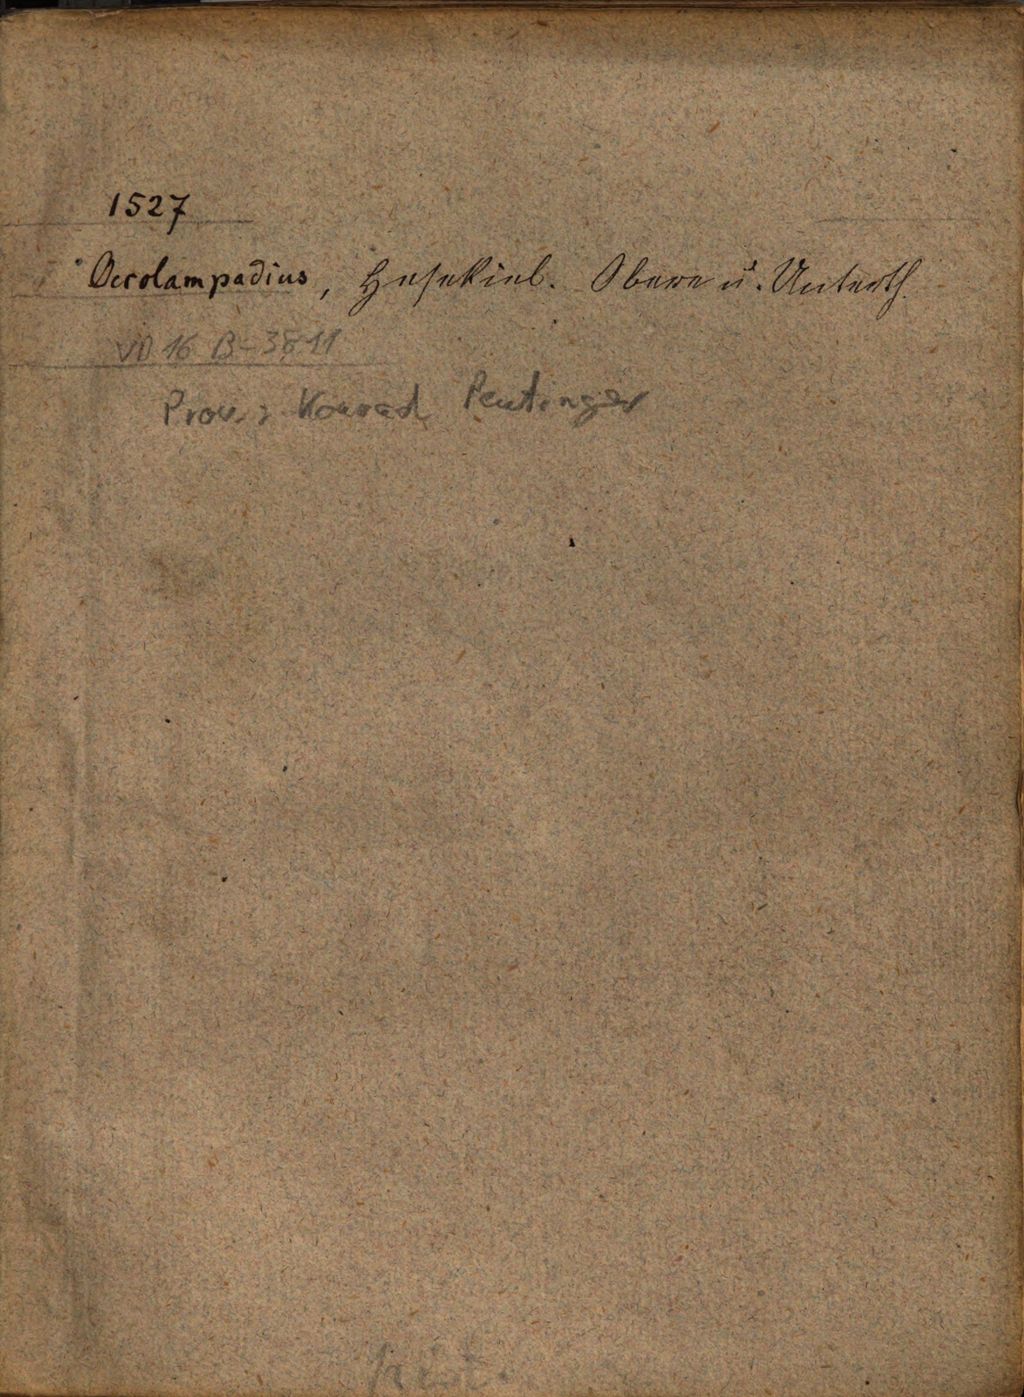 1527
Oecolampadius, Hesekiel. Obere u. Unterth.
VD 16 B-3811
Prov.: Konrad Peutinger